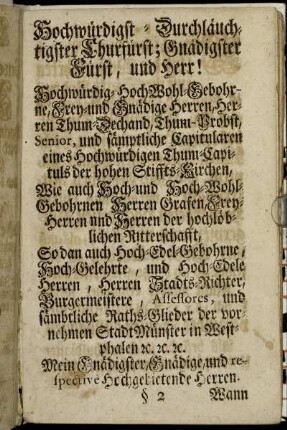 Hochwürdigst-Durchläuch-
tigster Churfürst; Gnädigster
Fürst, und Herr!
Hochwürdig-HochWohl-Gebohr-
ne, Frey-und Gnädige Herren, Her-
ren Thum-Dechand, Thum-Probst,
Senior, und sämptliche Capitularen
eines Hochwürdigen Thum-Capi-
tuls der hohen Stiffts-Kirchen,
Wie auch Hoch-und Hoch-Wohl-
Gebohrnen Herren Grafen, Frey-
Herren nnd Herren der hochlöb-
lichen Ritterschafft,
So dan auch Hoch-Edel-Gebohrne,
Hoch-Gelehrte, und Hoch-Edele
Herren, Herren Stadts-Richter,
Burgermeistere, Assessores, und
sämbtliche Raths-Glieder der vor-
nehmen Stadt Münster in West-
phalen ꝛc. ꝛc. ꝛc.
Mein Gnädigster, Gnädige, und re-
spective Hochgebietende Herren.
§ 2 Wann